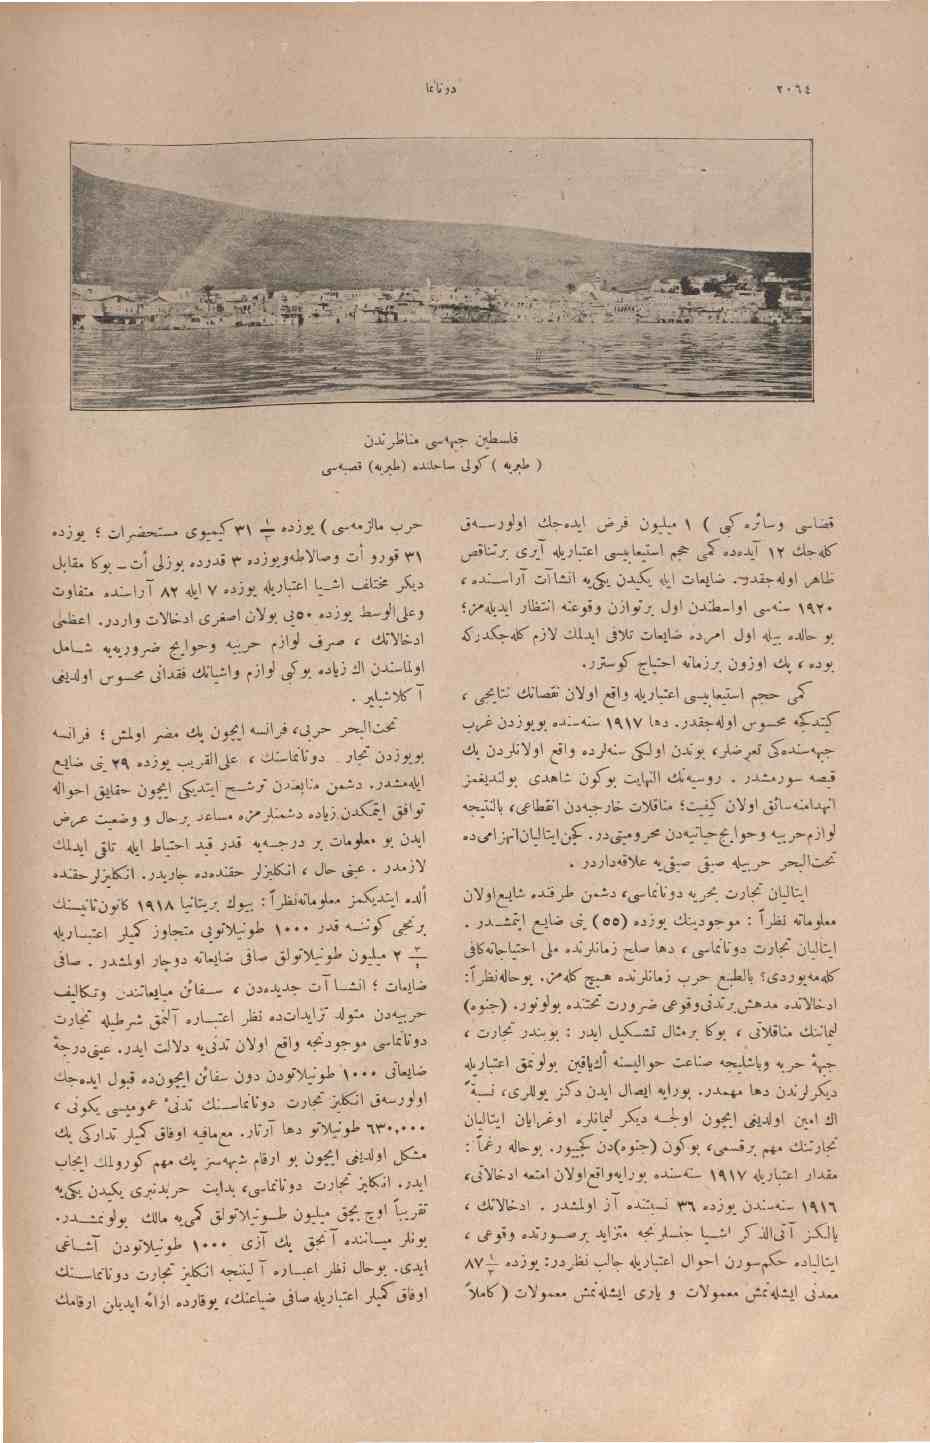 ٢٠٦٤
دونانما
فلسطین جبهه‌سی مناظرندن
( طبریه ) كولی ساحلنده (طبریه) قصبه‌سی
قضاسی وسائره كبی ) ١ میلیون فرض ایده‌جك اولورسه‌ق
كله‌جك ١٢ آیده‌ده كمی حجم استیعابیسی اعتباریله آیری برتناقص
ظاهر اوله‌جقدر. ضایعات ایله یكیدن یكی‌یه انشاآت آراسنده ،
١٩٢٠ سنه‌سی اواسطندن اول برتوازن وقوعنه انتظار ایدیله‌مز؛
بو حالده بیله اول امرده ضایعات تلافی ایدلمك لازم كله‌جكدركه
بوده ، پك اوزون برزمانه احتیاج كوسترر.
كمی حجم استیعابیسی اعتباریله واقع اولان نقصانك نتایجی ،
كیتدكجه محسوس اوله‌جقدر. دها ١٩١٧ سنه‌سنده بویوزدن غرب
جبهه‌سنده‌كی تعرضلر، بوندن اولكی سنه‌لرده واقع اولانلردن پك
قیصه سورمشدر . روسیه‌نك النهایت بوكون شاهدی بولندیغمز
انهدامنه‌سائق اولان كیفیت؛ مناقلات خارجیه‌دن انقطاعی، بالنتیجه
لوازم‌حربیه وحوایج‌حیاتیه‌دن محرومیتی‌در. كچن‌ایتالیان‌انهزامی‌ده
تحت‌البحر حربیله صیقی صیقی‌یه علاقه‌داردر .
ایتالیان تجارت بحریه دونانماسی، دشمن طرفنده شایع‌اولان
معلوماته نظراً : موجودینك یوزده (٥٥) نی ضایع ایتمشدر .
ایتالیان تجارت دونانماسی ، دها صلح زمانلرنده ملی احتیاجاته‌كافی
كله‌مه‌یوردی؟ بالطبع حرب زمانلرنده هیچ كله‌مز. بوحاله‌نظراً:
ادخالاتده مدهش‌برتدنی‌وقوعی ضرورت تحتنده بولونور. (جنوه)
لیماننك مناقلاتی ، بوكا برمثال تشكیل ایدر : بوبندر تجارت ،
جبهۀ حربه وباشلیجه صناعت حوالیسنه اك‌یاقین بولونمق اعتباریله
دیكرلرندن دها مهمدر. بورایه ایصال ایدن دكز یوللری، نسبةً
اك امین اولدیغی ایچون اولجه دیكر لیمانلره اوغرایان ایتالیان
تجارتنك مهم برقسمی، بوكون (جنوه)دن كچییور. بوحاله رغماً :
مقدار اعتباریله ١٩١٧ سنه‌سنده بورایه‌واقع‌اولان امتعه ادخالاتی،
١٩١٦ سنه‌سندن یوزده ٣٦ نسبتنده آز اولمشدر . ادخالاتك ،
یالكز آتی‌الذكر اشیا جنسلرنجه متزاید برصورتده وقوعی ،
ایتالیاده حكم‌سورن احوال اعتباریله جالب نظردر: یوزده ٨٧
معدنی ایشله‌نمش معمولات و یاری ایشله‌نمش معمولات ( كاملاً
حرب مالزمه‌سی ) یوزده ٣١ كیمیوی مستحضرات ؛ یوزده
٣١ قورو أت وصالاطه‌ویوزده ٣ قدرده بوزلی أت ـ بوكا مقابل
دیكر مختلف اشیا اعتباریله یوزده ٧ ایله ٨٢ آراسنده متفاوت
وعلی‌الوسط یوزده ٥٠یی بولان اصغری ادخالات واردر. اعظمی
ادخالاتك ، صرف لوازم حربیه وحوایج ضروریه‌یه شامل
اولماسندن اك زیاده بوكبی لوازم واشیانك فقدانی محسوس اولدیغی
آكلاشیلیر .
تحت‌البحر حربی، فرانسه ایچون پك مضر اولمش ؛ فرانسه
بویوزدن تجار دونانماسنك ، علی‌القریب یوزده ٢٩ نی ضایع
ایله‌مشدر. دشمن منابعندن ترشح ایتدیكی ایچون حقایق احواله
توافق ایتمكدن زیاده دشمنلرمزه مساعد برحال و وضعیت عرض
ایدن بو معلومات بر درجه‌یه قدر قید احتیاط ایله تلقی ایدلمك
لازمدر . عینی حال ، انكلیزلر حقنده‌ده جاریدر. انكلیزلرحقنده
ألده ایتدیكمز معلوماته‌نظراً : بیوك بریتانیا ١٩١٨ كانون‌ثانیسنك
برنجی كوننه قدر ١٠٠٠ طونیلاتویی متجاوز كمیلر اعتباریله
٢ میلیون طونیلاتولق صافی ضایعاته دوچار اولمشدر . صافی
ضایعات ؛ انشاآت جدیده‌دن ، سفائن مبایعاتندن وتكالیف
حربیه‌دن متولد تزایدات‌ده نظر اعتباره آلنمق شرطیله تجارت
دونانماسی موجودنجه واقع اولان تدنی‌یه دلالت ایدر. عینی‌درجۀ
ضایعاتی ١٠٠٠ طونیلاتودن دون سفائن ایچون‌ده قبول ایده‌جك
اولورسه‌ق انكلیز تجارت دونانماسنك تدنیٔ عمومیسی یكونی ،
٦٣٠,٠٠٠ طونیلاتو دها آرتار. مع‌مافیه اوفاق كمیلر تداركی پك
مشكل اولدیغی ایچون بو ارقام شبهه‌سز پك مهم كورولمك ایجاب
ایدر. انكلیز تجارت دونانماسی، بدایت حربدنبری یكیدن یكی‌یه
تقریباً اوچ بچق میلیون طونیلاتولق كمی‌یه مالك بولونمشدر.
بونلر میاننده آنجق پك آزی ١٠٠٠ طونیلاتودن آشاغی
ایدی. بوحال نظر اعتباره آلیننجه انكلیز تجارت دونانماسنك
اوفاق كمیلر اعتباریله صافی ضیاعنك، یوقارده ارائه ایدیلن ارقامك